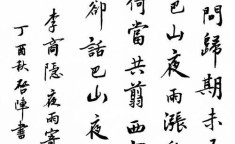 問歸期未
巴山夜雨漲
何當共剪西
卻話巴山夜
李商隱夜雨寄
丁酉秋啓陣書